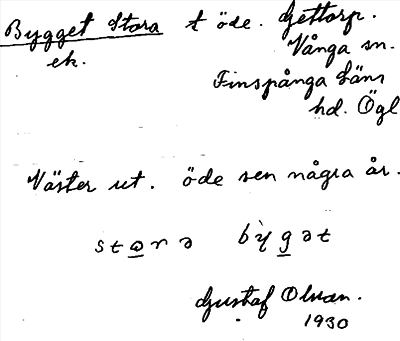 Bygget Stora t öde. Gettorp.
ek. Vånga sn.
Finspånga läns
hd. Ögl
Väster ut. öde sen några år.
stɷrə bỳgət
Gustaf Olsson.
1930